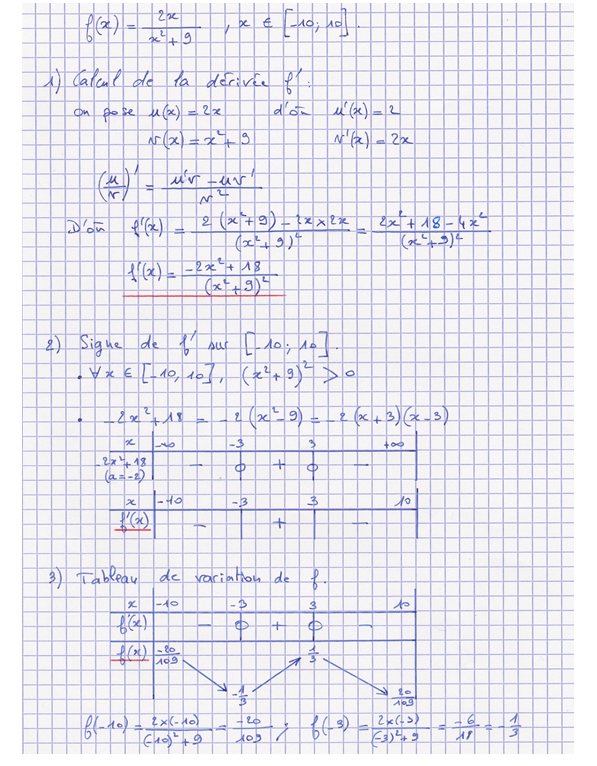 f(x) = 2x/(x²+9) , x ∈ [-10; 10].
1) Calcul de la dérivée f' :
on pose u(x) = 2x d'où u'(x) = 2
v(x) = x² + 9 v'(x) = 2x
(u/v)' = (u'v - uv')/v²
D'où f'(x) = (2(x²+9) - 2x×2x)/(x²+9)² = (2x² + 18 - 4x²)/(x²+9)²
f'(x) = (-2x² + 18)/(x²+9)²
2) Signe de f' sur [-10; 10].
• ∀x ∈ [-10, 10], (x²+9)² > 0
• -2x²+18 = -2(x²-9) = -2(x+3)(x-3)
x -∞ -3 3 +∞
-2x²+18 - 0 + 0 -
(a=-2)
x -10 -3 3 10
f'(x) - + -
3) Tableau de variation de f.
x -10 -3 3 10
f'(x) - 0 + 0 -
f(x) -20/109 1/3
-1/3 20/109
f(-10) = 2×(-10)/((-10)²+9) = -20/109 ; f(-3) = 2×(-3)/((-3)²+9) = -6/18 = -1/3